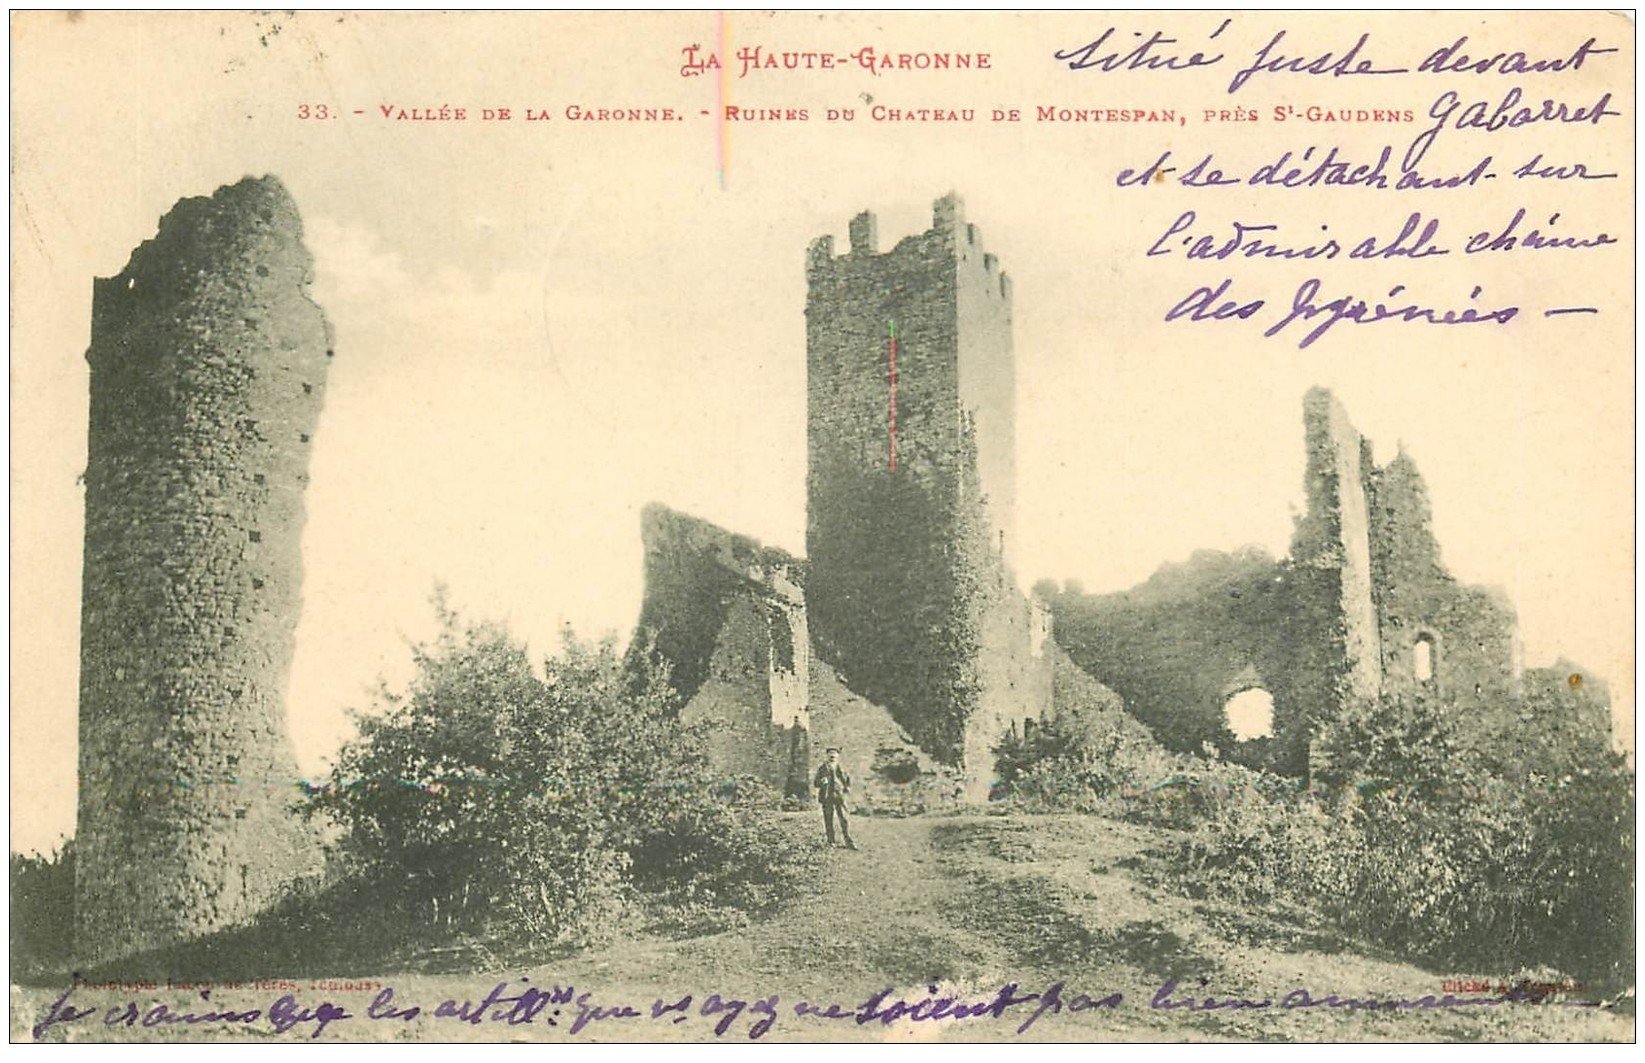 La Haute-Garonne
33. - Vallée de la Garonne. - Ruines du Chateau de Montespan, près St-Gaudens
Situé juste devant
Gabarret
et se détachant sur
l'admirable chaîne
des pyrénées —
Labouche Frères, Toulouse
Cliché A.
Je crains que les artill que vs ayez ne soient pas bien amusants